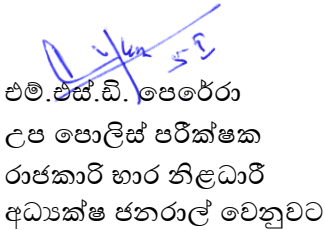 එම්.එස්.ඩී. පෙරේරා
උප පොලිස් පරීක්ෂක
රාජකාරී භාර නිළධාරී
අධ්‍යක්ෂ ජනරාල් වෙනුවට